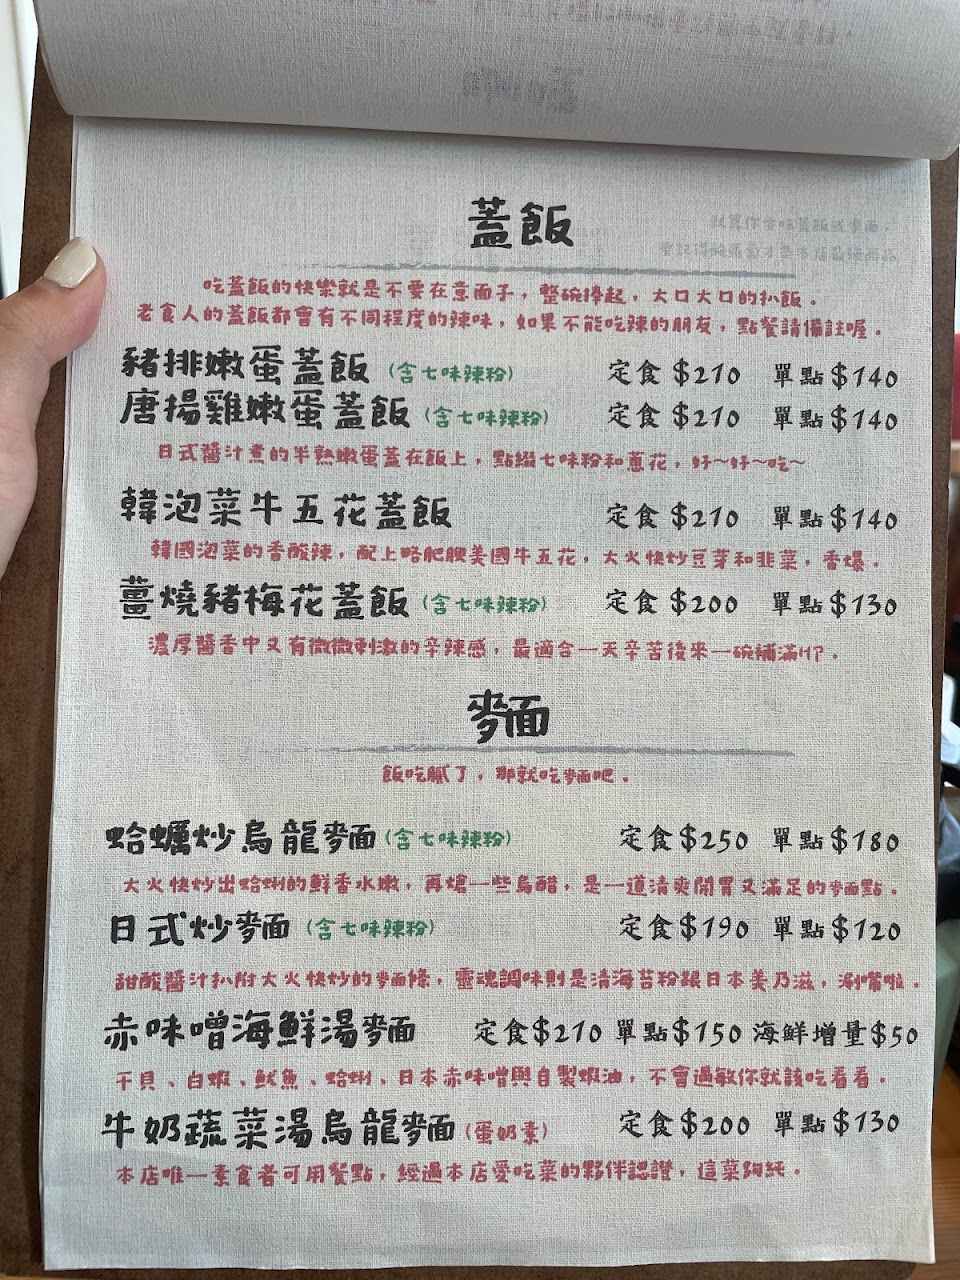 蓋飯
吃蓋飯的快樂就是不要在意面子，整碗捧起，大口大口的扒飯．
老食人的蓋飯都會有不同程度的辣味，如果不能吃辣的朋友，點餐請備註喔．
豬排嫩蛋蓋飯 (含七味辣粉) 定食$210 單點$140
唐揚雞嫩蛋蓋飯 (含七味辣粉) 定食$210 單點$140
日式醬汁煮的半熟嫩蛋蓋在飯上，點綴七味粉和蔥花，好～好～吃～
韓泡菜牛五花蓋飯 定食$210 單點$140
韓國泡菜的香酸辣，配上略肥腴美國牛五花，大火快炒豆芽和韭菜，香爆．
薑燒豬梅花蓋飯 (含七味辣粉) 定食$200 單點$130
濃厚醬香中又有微微刺激的辛辣感，最適合一天辛苦後來一碗補滿HP．
麥面
飯吃膩了，那就吃麵吧．
蛤蠣炒烏龍麵 (含七味辣粉) 定食$250 單點$180
大火快炒出蛤蜊的鮮香水嫩，再熗一些烏醋，是一道清爽開胃又滿足的麵點．
日式炒麵 (含七味辣粉) 定食$190 單點$120
甜酸醬汁扒附大火快炒的麵條，靈魂調味則是清海苔粉跟日本美乃滋，涮嘴啦．
赤味噌海鮮湯麵 定食$210 單點$150 海鮮增量$50
干貝、白蝦、魷魚、蛤蜊、日本赤味噌與自製蝦油，不會過敏你就該吃看看．
牛奶蔬菜湯烏龍麵 (蛋奶素) 定食$200 單點$130
本店唯一素食者可用餐點，經過本店愛吃菜的夥伴認證，這菜夠純．